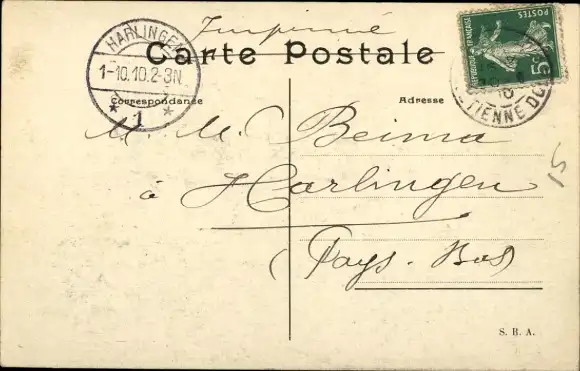 Imprimé
Carte Postale
HARLINGEN
1-10.10.2-3N
* 1 *
Correspondance
Adresse
POSTES
REPUBLIQUE FRANÇAISE
5c
10
ETIENNE DU
M. M. Beima
à Harlingen
(Pays-Bas)
15
S. R. A.